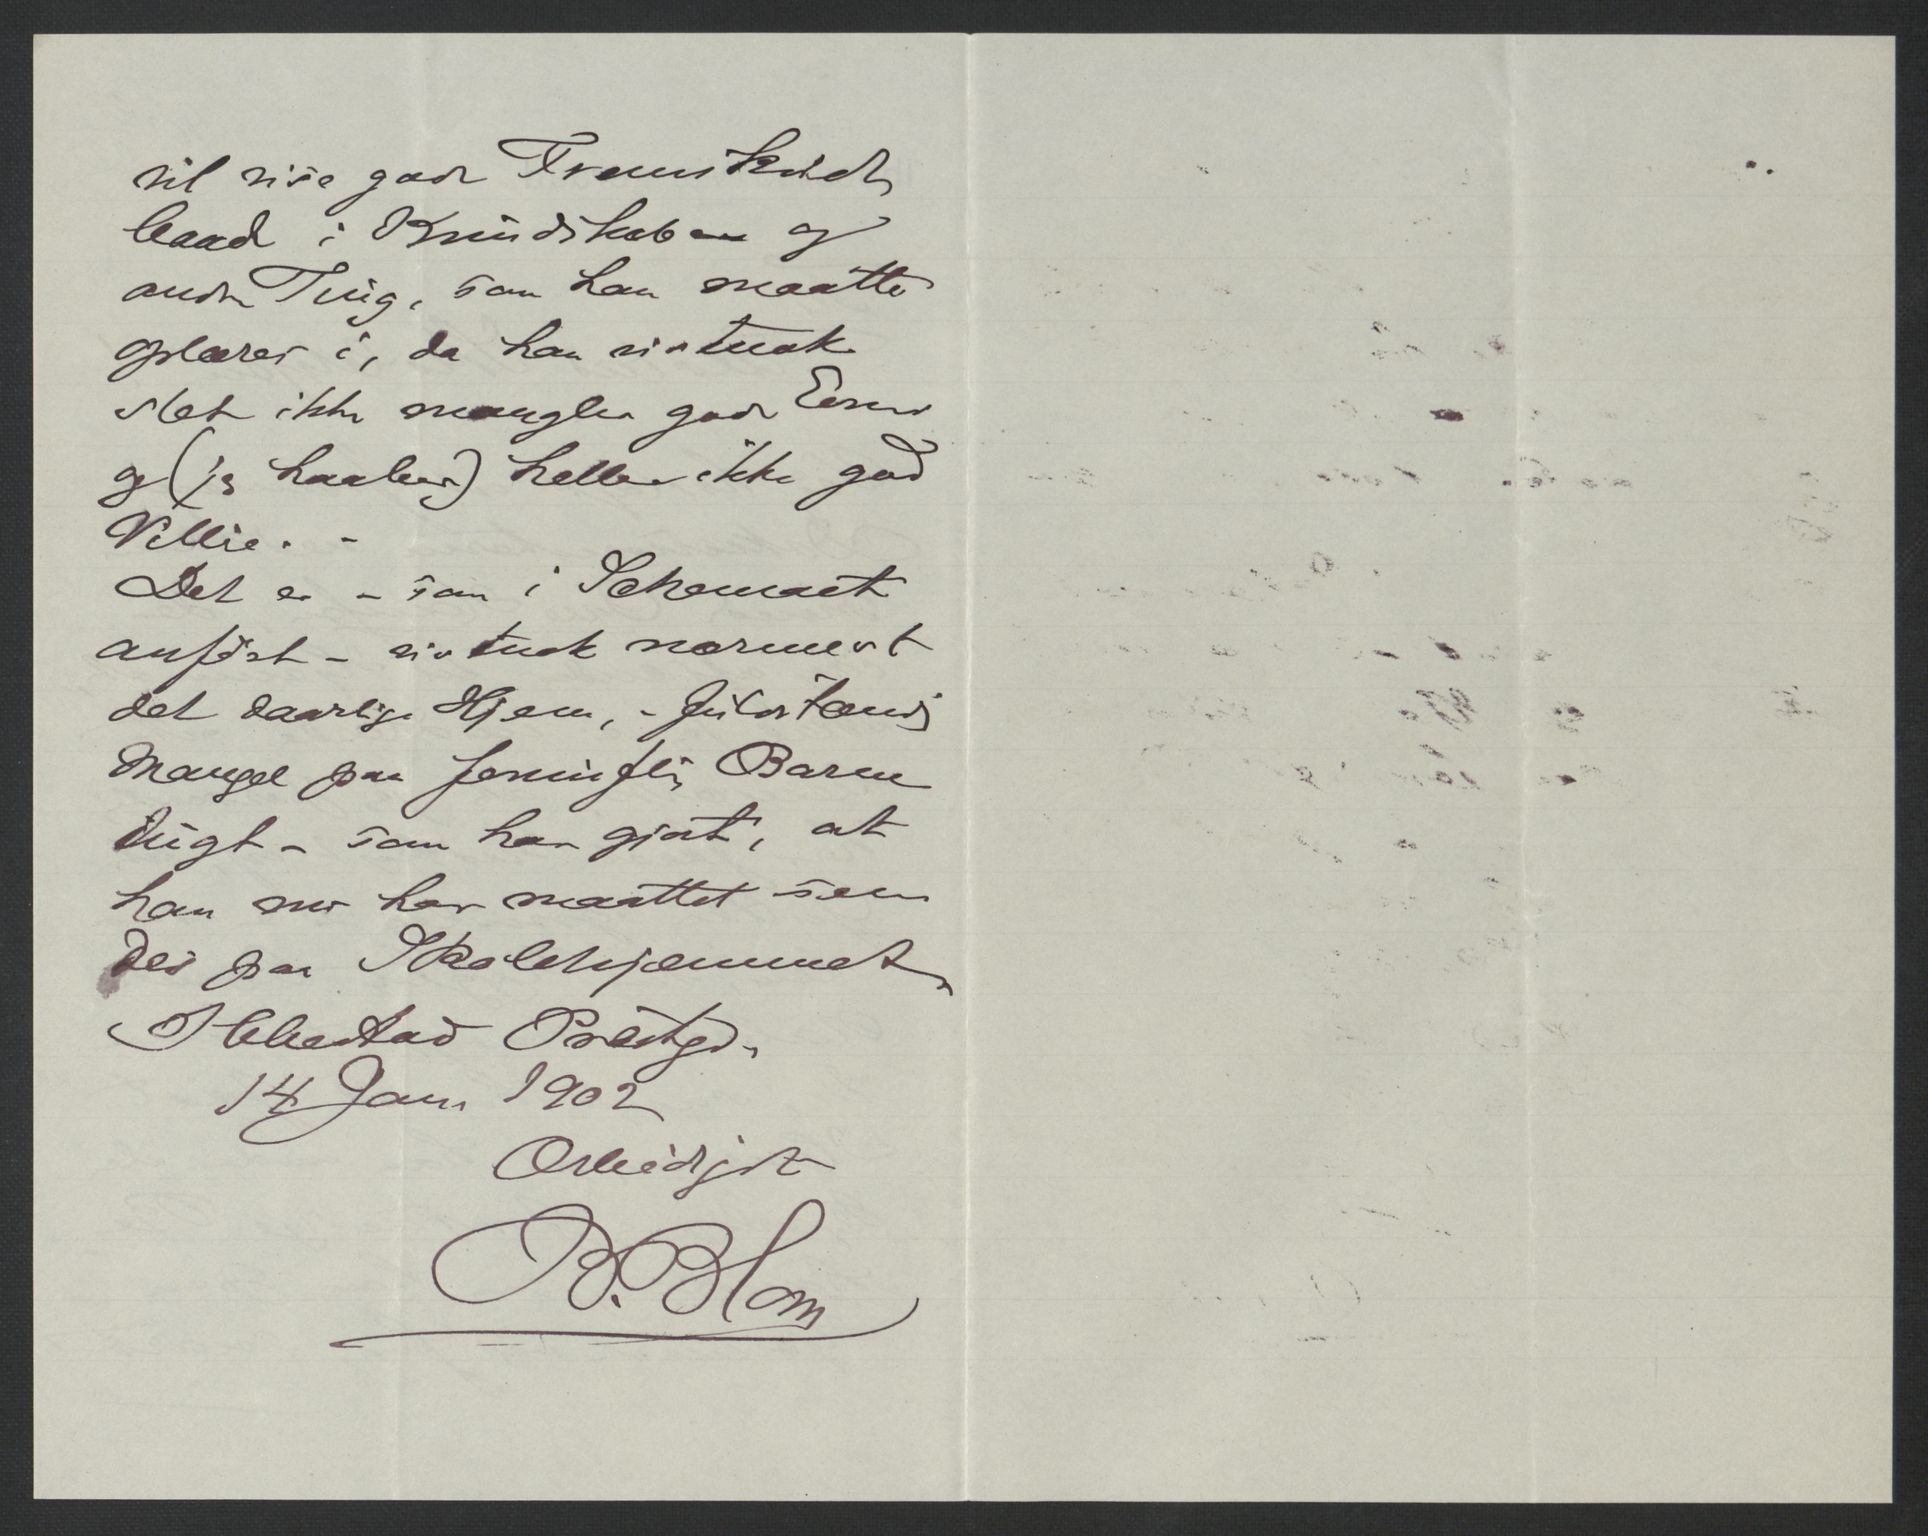 vil vise gode Fremskridt
baade i Kundskaber og
andre Ting, som han maatte
oplæres i, da han vistnok
slet ikke mangler gode Evner
og (jeg haaber) heller ikke god
Villie. -
Det er - som i Schemaet
anført - vistnok nærmest
det daarlige Hjem, - fuldstændig
Mangel paa fornuftig Barne
tugt - som har gjort, at
han nu har maattet sen
des paa Skolehjemmet.
Prestgd.
14 Janr 1902
Ærbødigst
B. Blom